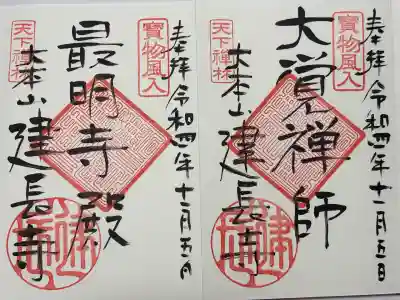 寳物風入
奉拝 令和四年十一月五日
大覚禅師
天下禅林
大本山 建長寺
寳物風入
奉拝 令和四年十一月五日
最明寺殿
天下禅林
大本山 建長寺